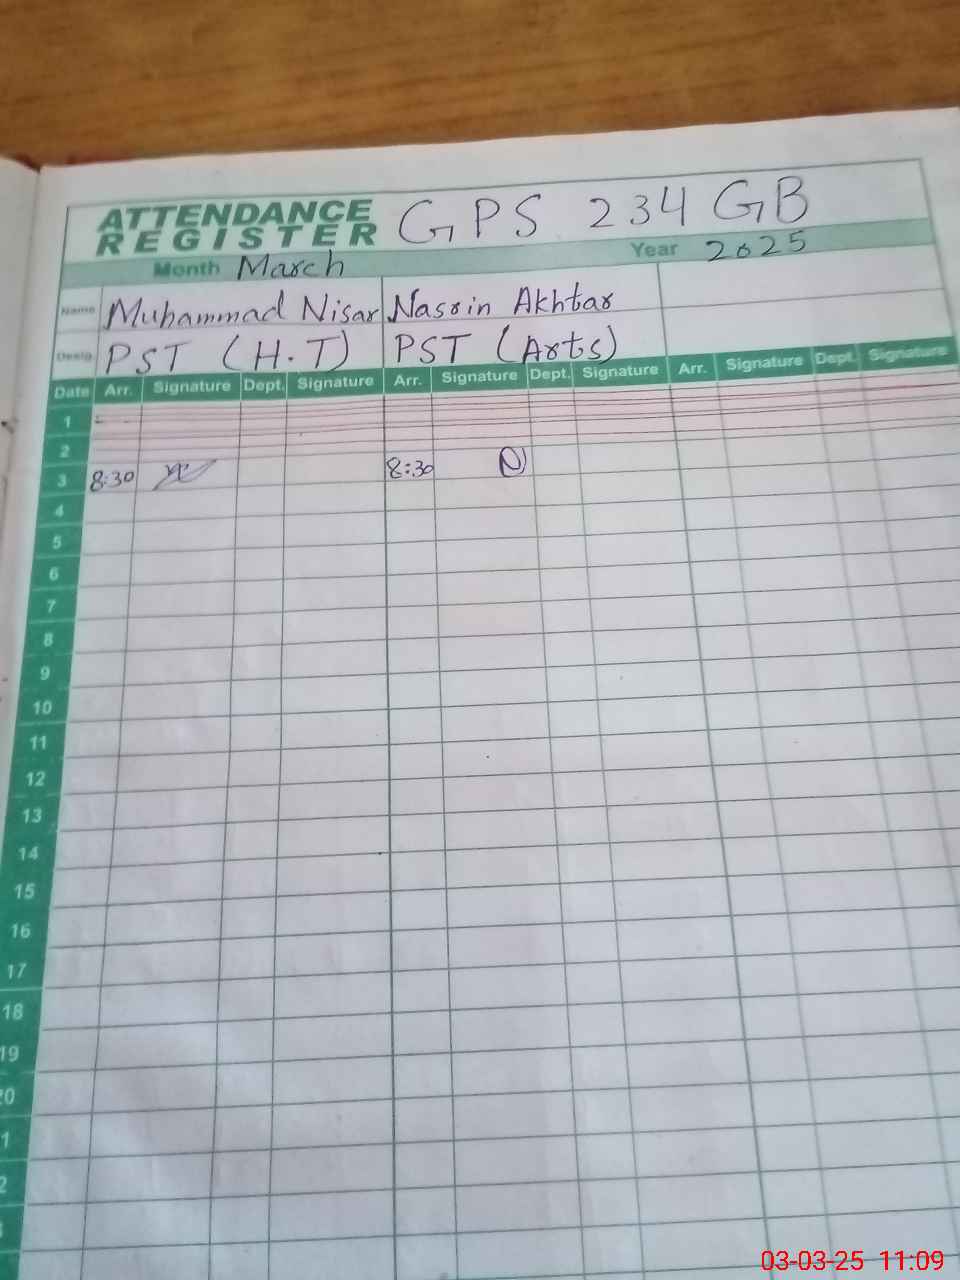 ATTENDANCE
REGISTER
GPS 234 GB
Month March
Year 2025
Name Muhammad Nisar Nasrin Akhtar
Desig. PST (H.T) PST (Arts)
Date Arr. Signature Dept. Signature Arr. Signature Dept. Signature Arr. Signature Dept. Signature
1
2
3 8:30 8:30
4
5
6
7
8
9
10
11
12
13
14
15
16
17
18
19
20
1
2
03-03-25 11:09